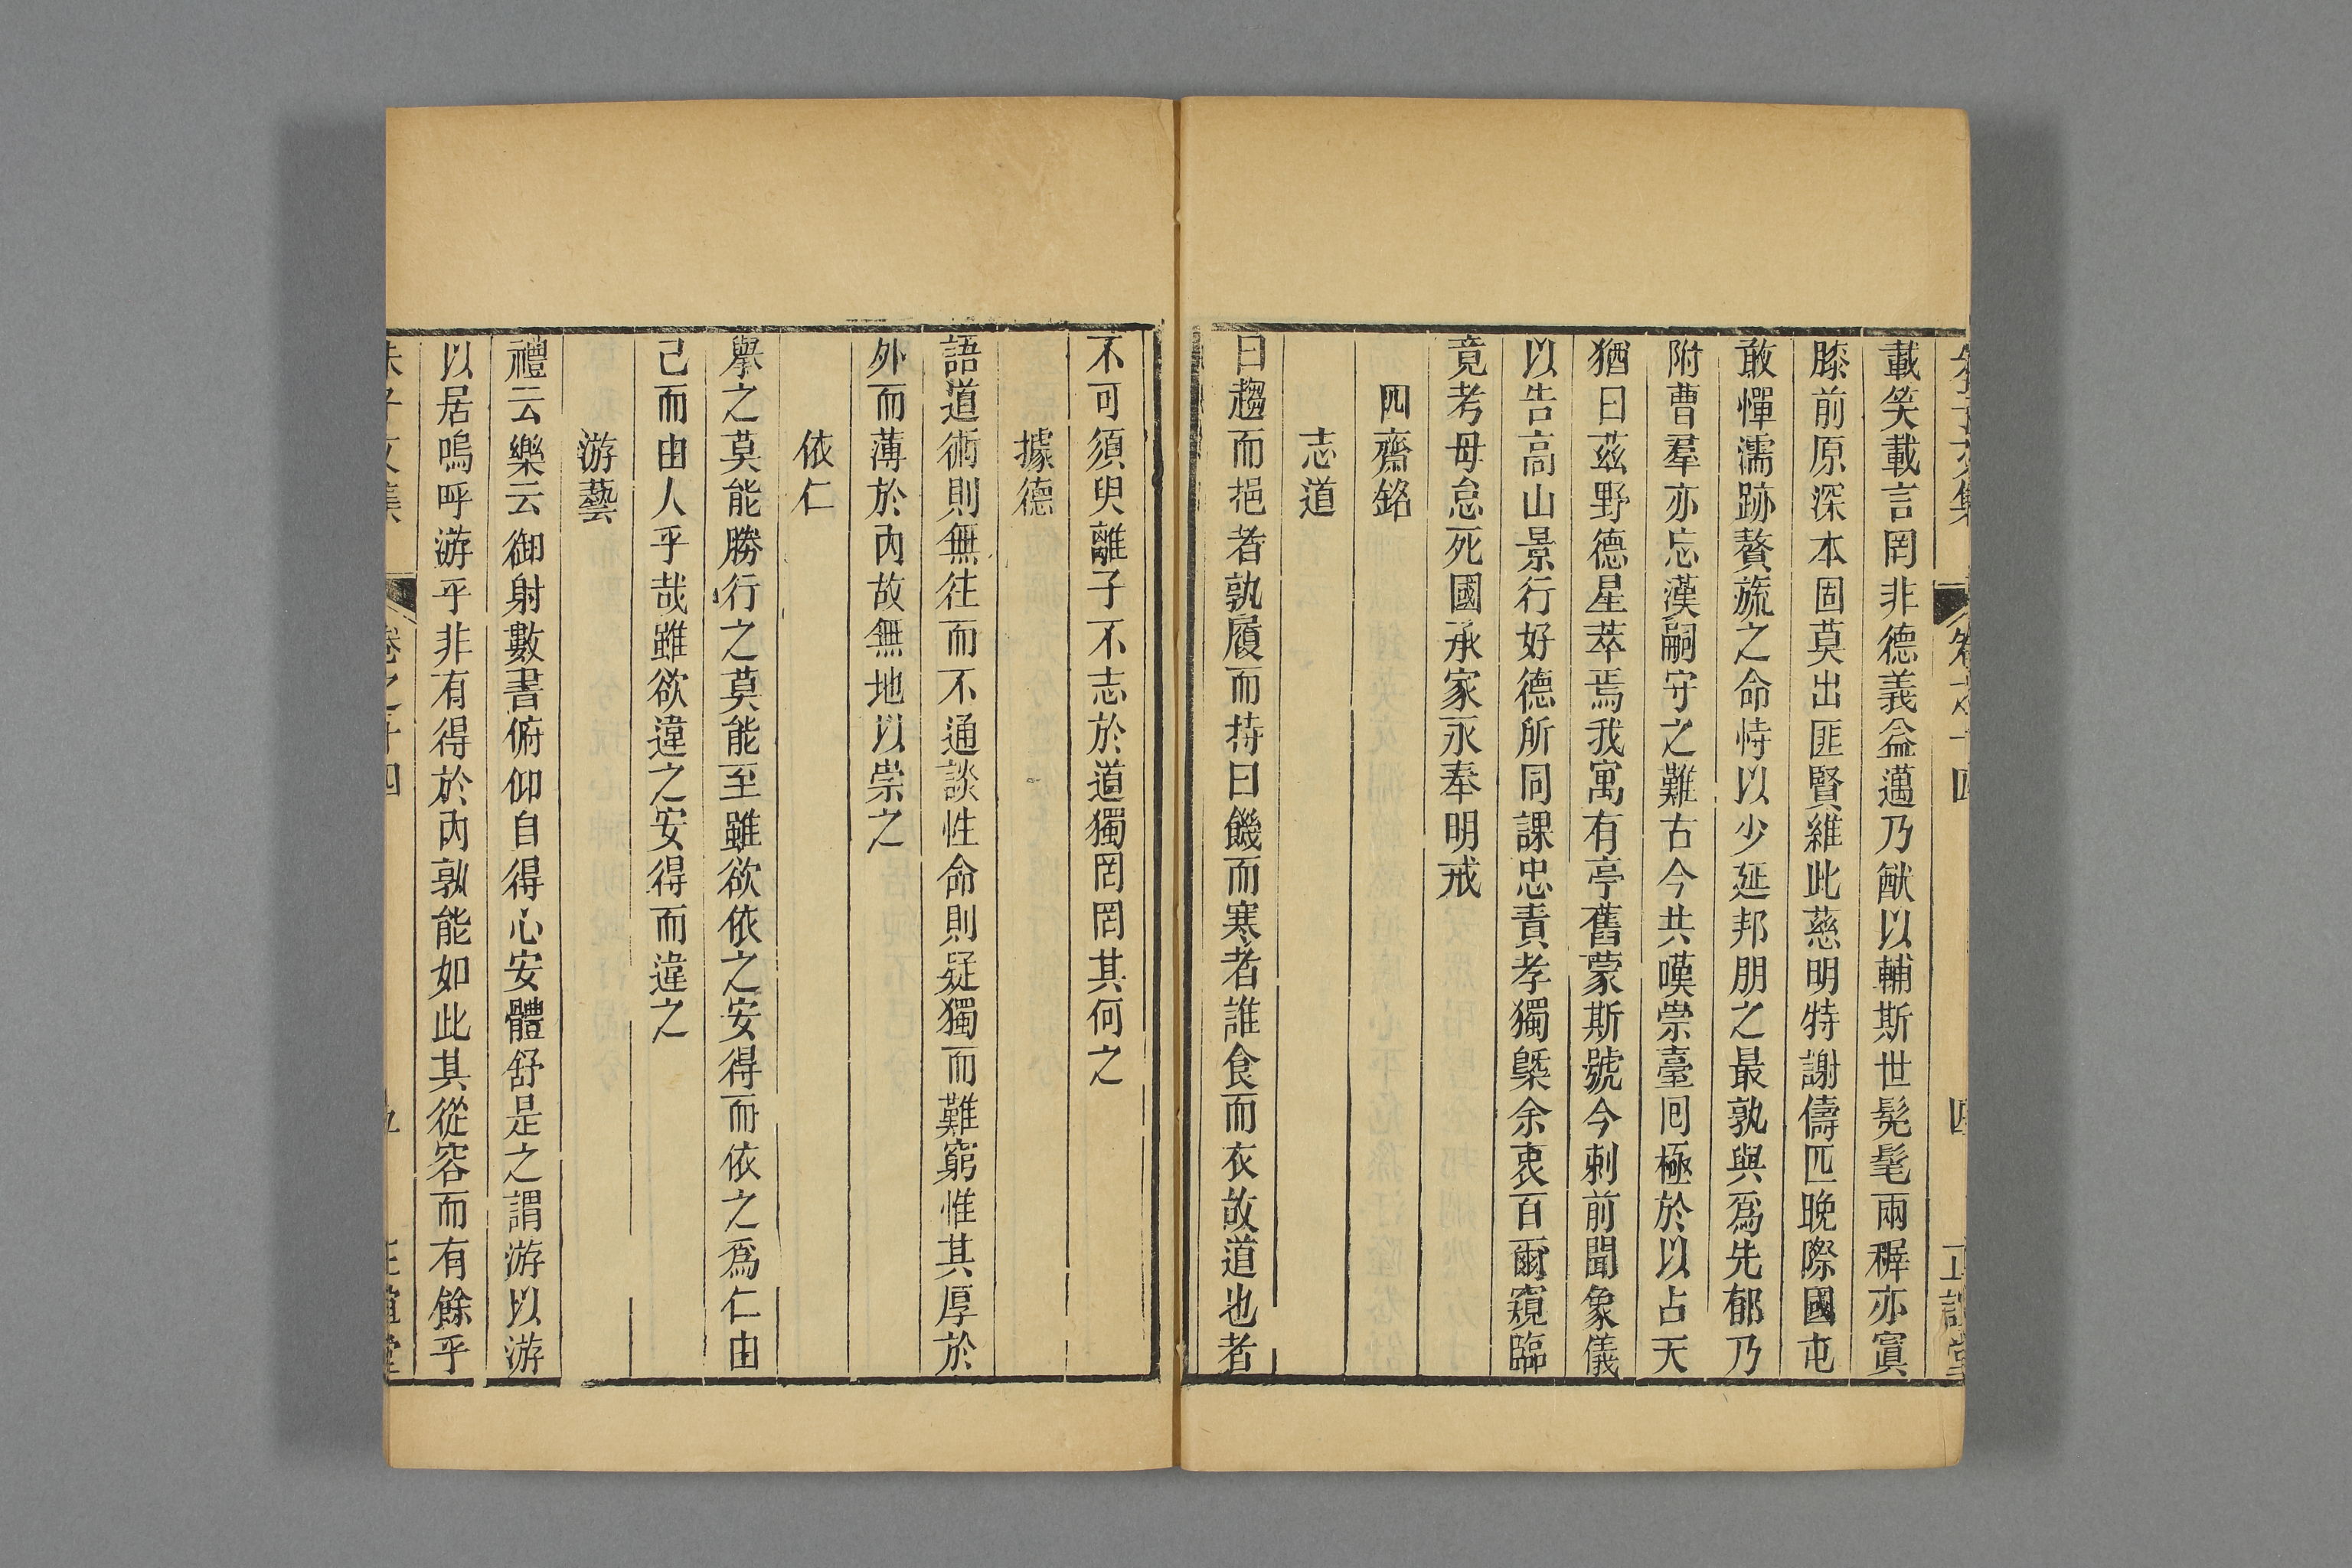 載笑載言罔非德義益邁乃猷以輔斯世髡髦兩穉亦寘
膝前原深本固莫出匪賢維此慈明特謝儔匹晚際國屯
敢憚濡跡贅旒之命恃以少延邦朋之最孰與為先郁乃
附曹羣亦忘漢嗣守之難古今共嘆崇臺囘極於以占天
猶曰兹野德星萃焉我寓有亭舊蒙斯號今刺前聞象儀
以告高山景行好德所同課忠責孝獨槩余衷百爾窺臨
竟考毋怠死國承家永奉明戒
四齋銘
志道
曰趨而挹者孰履而持曰饑而寒者誰食而衣故道也者
不可須臾離子不志於道獨罔罔其何之
據德
語道術則無往而不通談性命則疑獨而難窮惟其厚於
外而薄於內故無地以崇之
依仁
舉之莫能勝行之莫能至雖欲依之安得而依之為仁由
己而由人乎哉雖欲違之安得而違之
游藝
禮云樂云御射數書俯仰自得心安體舒是之謂游以游
以居嗚呼游乎非有得於內孰能如此其從容而有餘乎
朱子文集 卷之十四